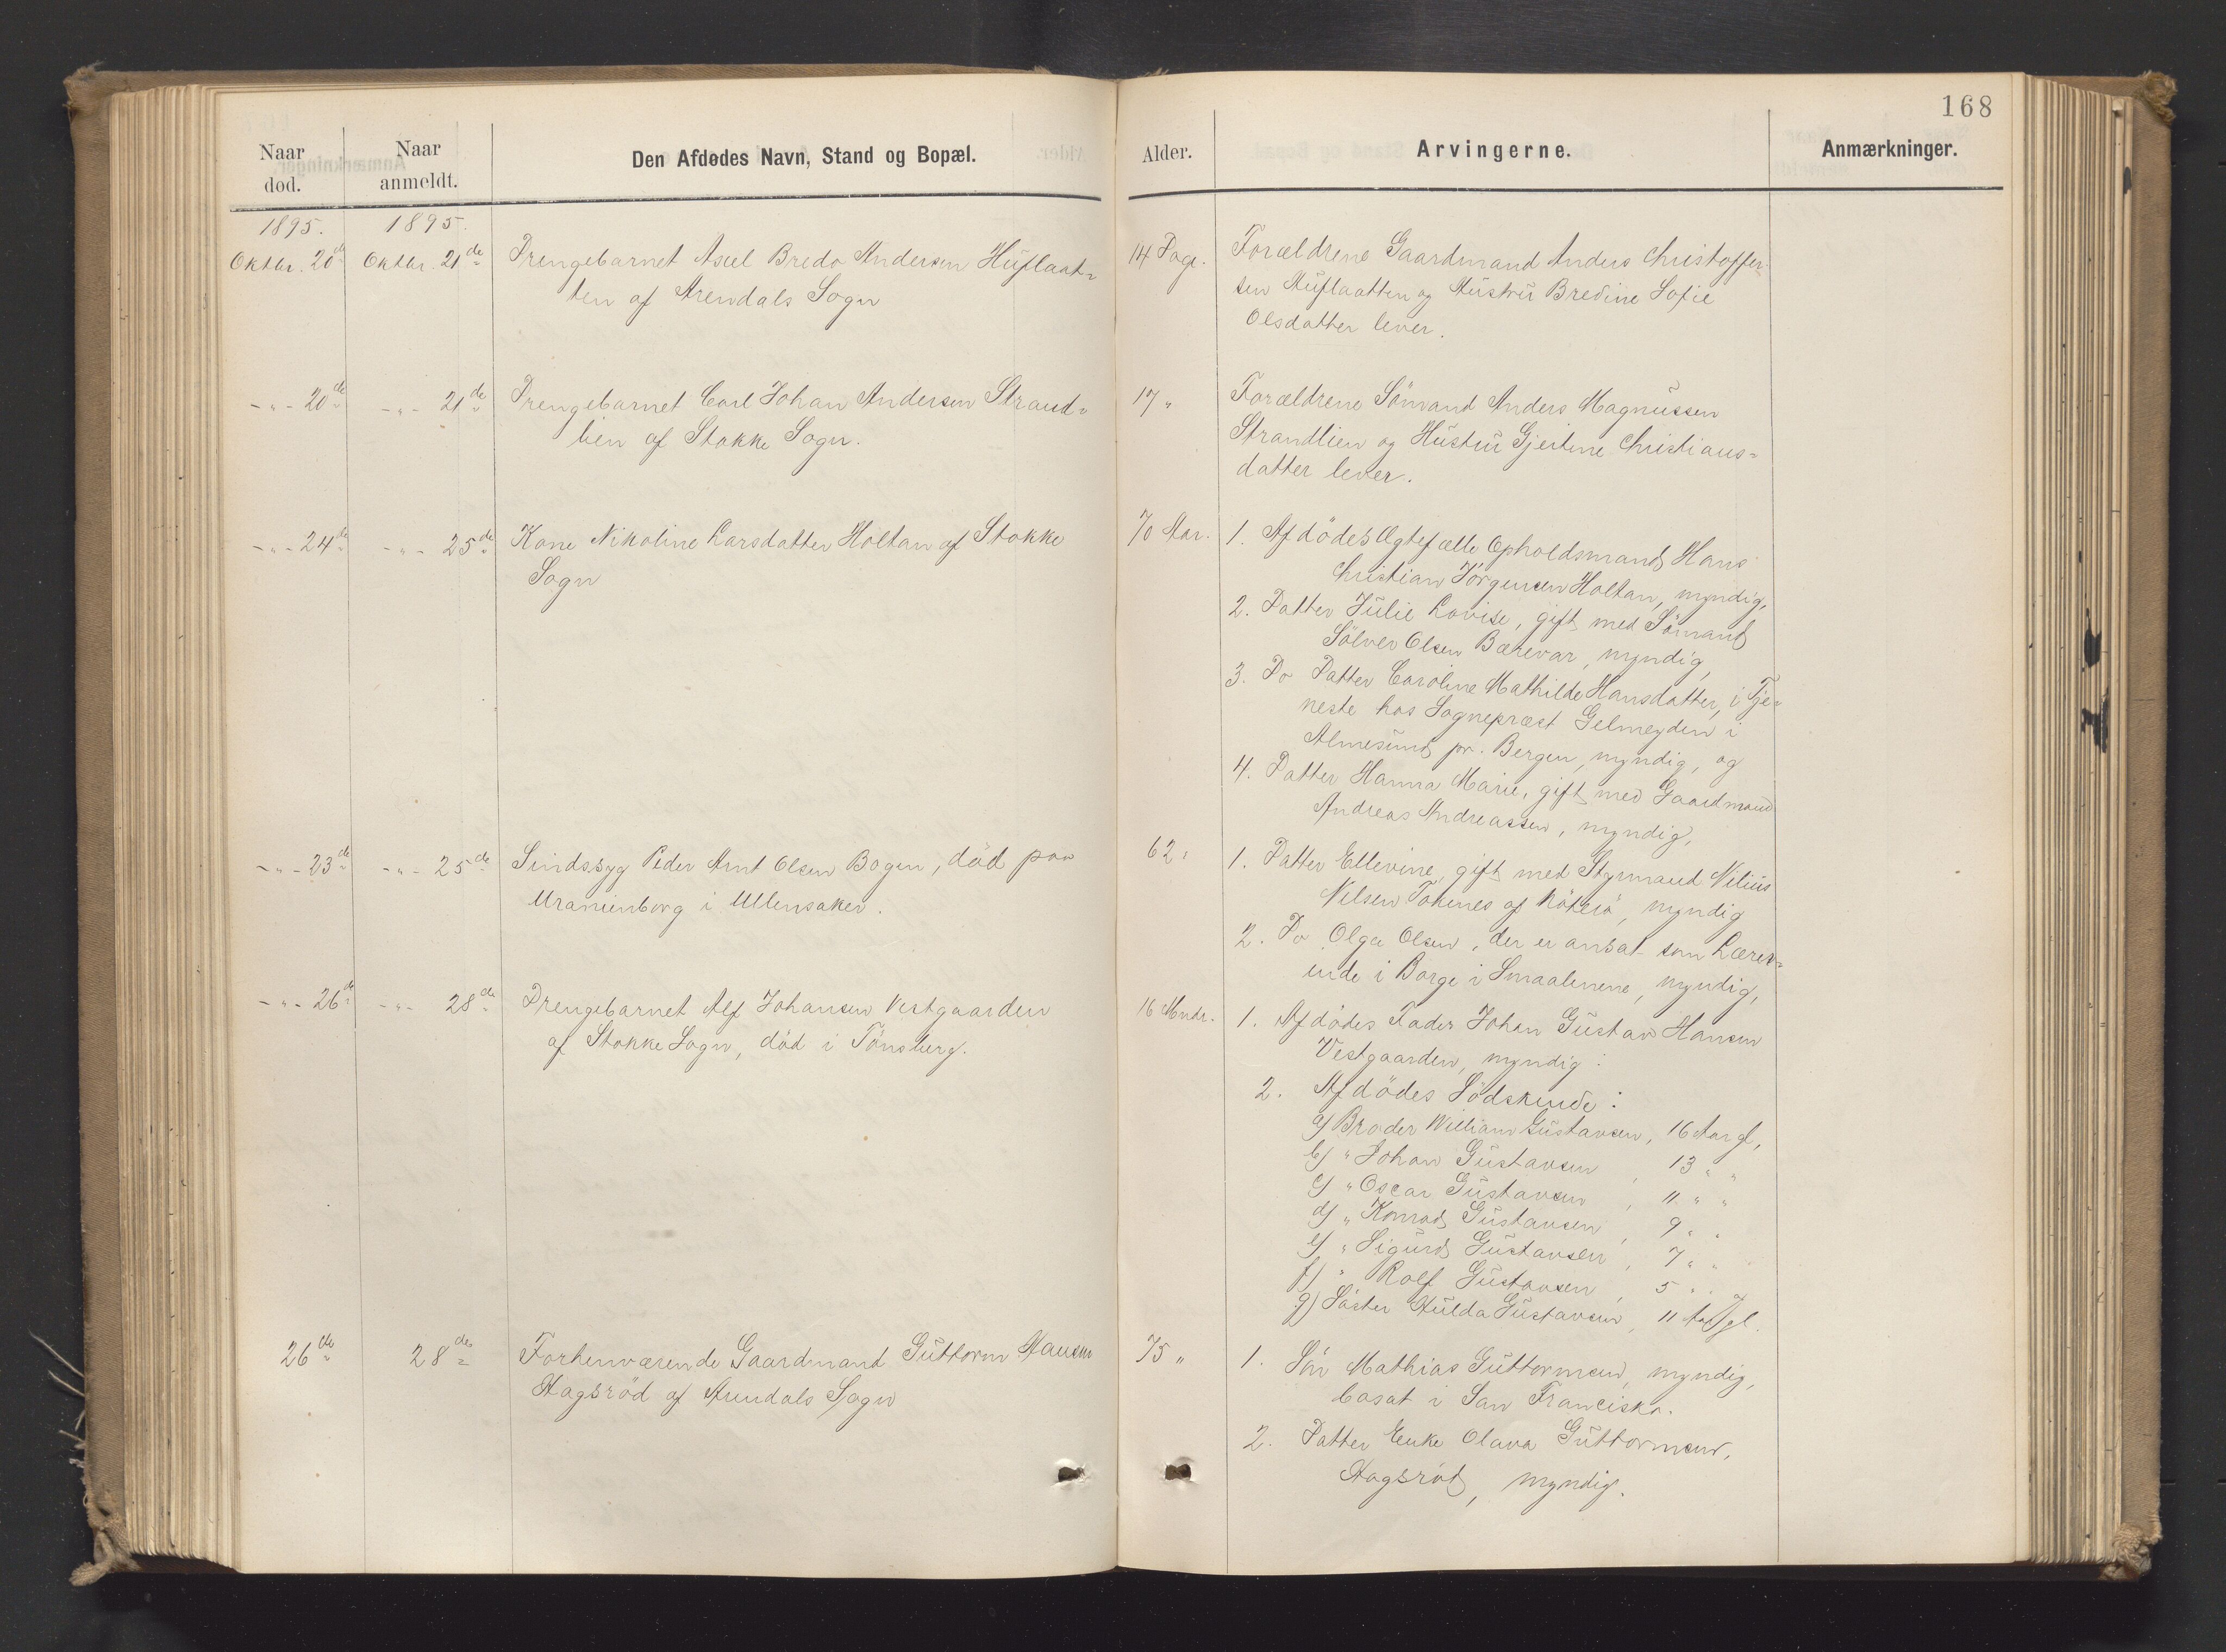 168
Naar død.
Naar anmeldt.
Den Afdødes Navn, Stand og Bopæl.
Alder.
Arvingerne.
Anmærkninger.
1895.
1895.
Oktbr. 20de
Oktbr. 21de
Drengebarnet Axel Bredo Andersen Huflaat-
ten af Arendals Sogn
14 Dage.
Forældrene Gaardmand Anders Christoffer-
sen Huflaatten og Hustru Bredine Sofie
Olsdatter lever.
-"- 20de
-"- 21de
Drengebarnet Carl Johan Andersen Strand-
lien af Stokke Sogn.
17 "
Forældrene Sömand Anders Magnussen
Strandlien og Hustru Gjertine Christians-
datter lever.
-"- 24de
-"- 25de
Kone Nikoline Larsdatter Holtan af Stokke
Sogn
70 Aar.
1. Afdödes Ægtefælle Opholdsmand Hans
Christian Jörgensen Holtan, myndig,
2. Datter Julie Lovise, gift med Sömand
Sölver Olsen Bærevar, myndig,
3. Do Datter Caroline Mathilde Hansdatter, i Tje-
neste hos Sognepræst Gelmeyden i
Almesund pr. Bergen, myndig, og
4. Datter Hanna Marie, gift med Gaardmand
Andreas Andreassen, myndig,
-"- 23de
-"- 25de
Sindssyg Peder Arnt Olsen Bogen, död paa
Uranienborg i Ullensaker.
62 "
1. Datter Ellevine, gift med Styrmand Nilius
Nilsen Tokenes af Nöterö, myndig
2. Do Olga Olsen, der er ansat som Lærer-
inde i Borge i Smaalenene, myndig,
-"- 26de
-"- 28de
Drengebarnet Alf Johansen Vestgaarden
af Stokke Sogn, död i Tönsberg.
16 Mndr.
1. Afdödes Fader Johan Gustav Hansen
Vestgaarden, myndig:
2. Afdödes Södskende:
a) Broder William Gustavsen, 16 Aar gl,
b) " Johan Gustavsen, 13 " "
c) " Oscar Gustavsen, 11 " "
d) " Konrad Gustavsen, 9 " "
e) " Sigurd Gustavsen, 7 " "
f) " Rolf Gustavsen, 5 " " og
g) Söster Hulda Gustavsen, 11 Aar gl.
26de
28de
Forhenværende Gaardmand Guttorm Hansen
Hagsröd af Arendals Sogn
75 "
1. Sön Mathias Guttormsen, myndig,
bosat i San Francisko.
2. Datter Enke Olava Guttormsen,
Hagsröd, myndig.